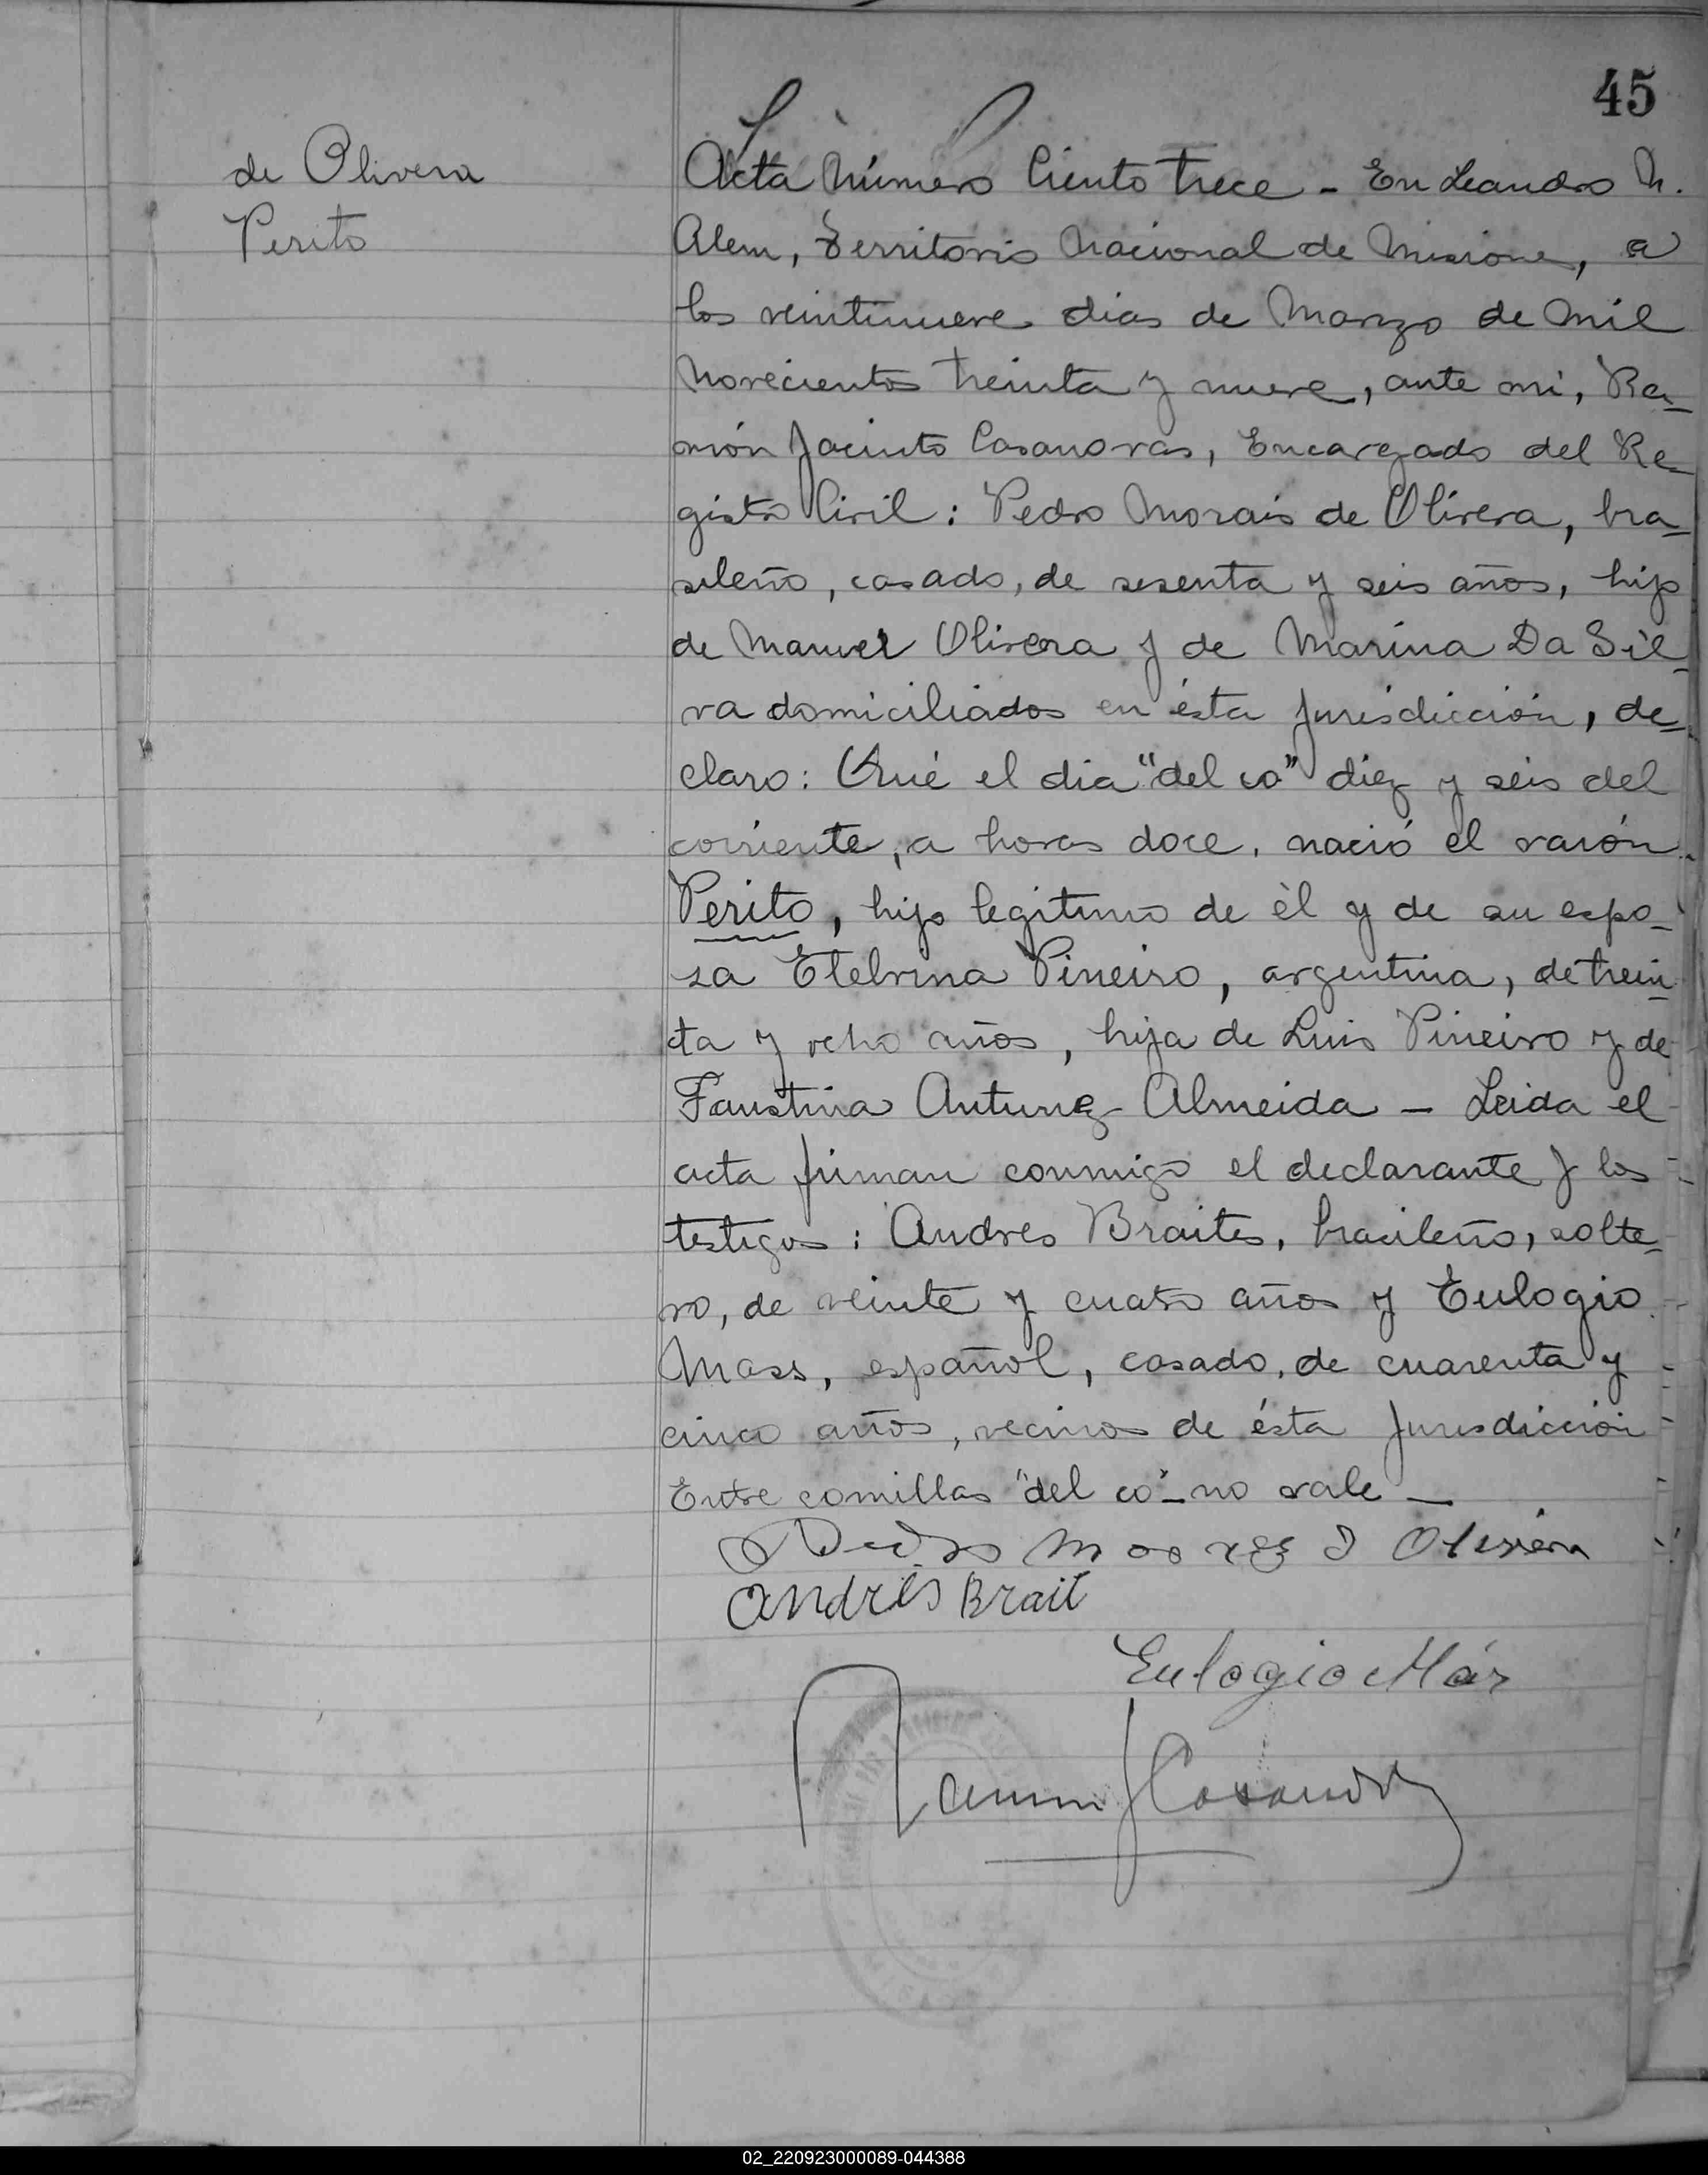 45
de Olivera
Perito
Acta Número Ciento trece - En Leandro N.
Alem, Territorio Nacional de Misiones, a
los veintinueve dias de Marzo de mil
novecientos treinta y nueve, ante mi, Ra-
món Jacinto Casanovas, Encargado del Re-
gistro Civil: Pedro Morais de Olivera, bra-
sileño, casado, de sesenta y seis años, hijo
de Manuel Olivera y de Marina Da Sil-
va domiciliados en ésta Jurisdicción, de-
claro: Qué el dia "del co" diez y seis del
corriente, a horas doce, nació el varón
Perito, hijo legitimo de èl y de su espo-
sa Etelvina Pineiro, argentina, de trein-
ta y ocho años, hija de Luis Pineiro y de
Faustina Antunez Almeida - Leida el
acta firman conmigo el declarante y los
testigos: Andres Braites, brasileño, solte-
ro, de veinte y cuatro años y Eulogio
Mass, español, casado, de cuarenta y
cinco años, vecinos de ésta Jurisdicción
Entre comillas "del co" - no vale -
Pedro Olivera
Andrés Brait
Eulogio Más
Ramon J Casanovas
02_220923000089-044388